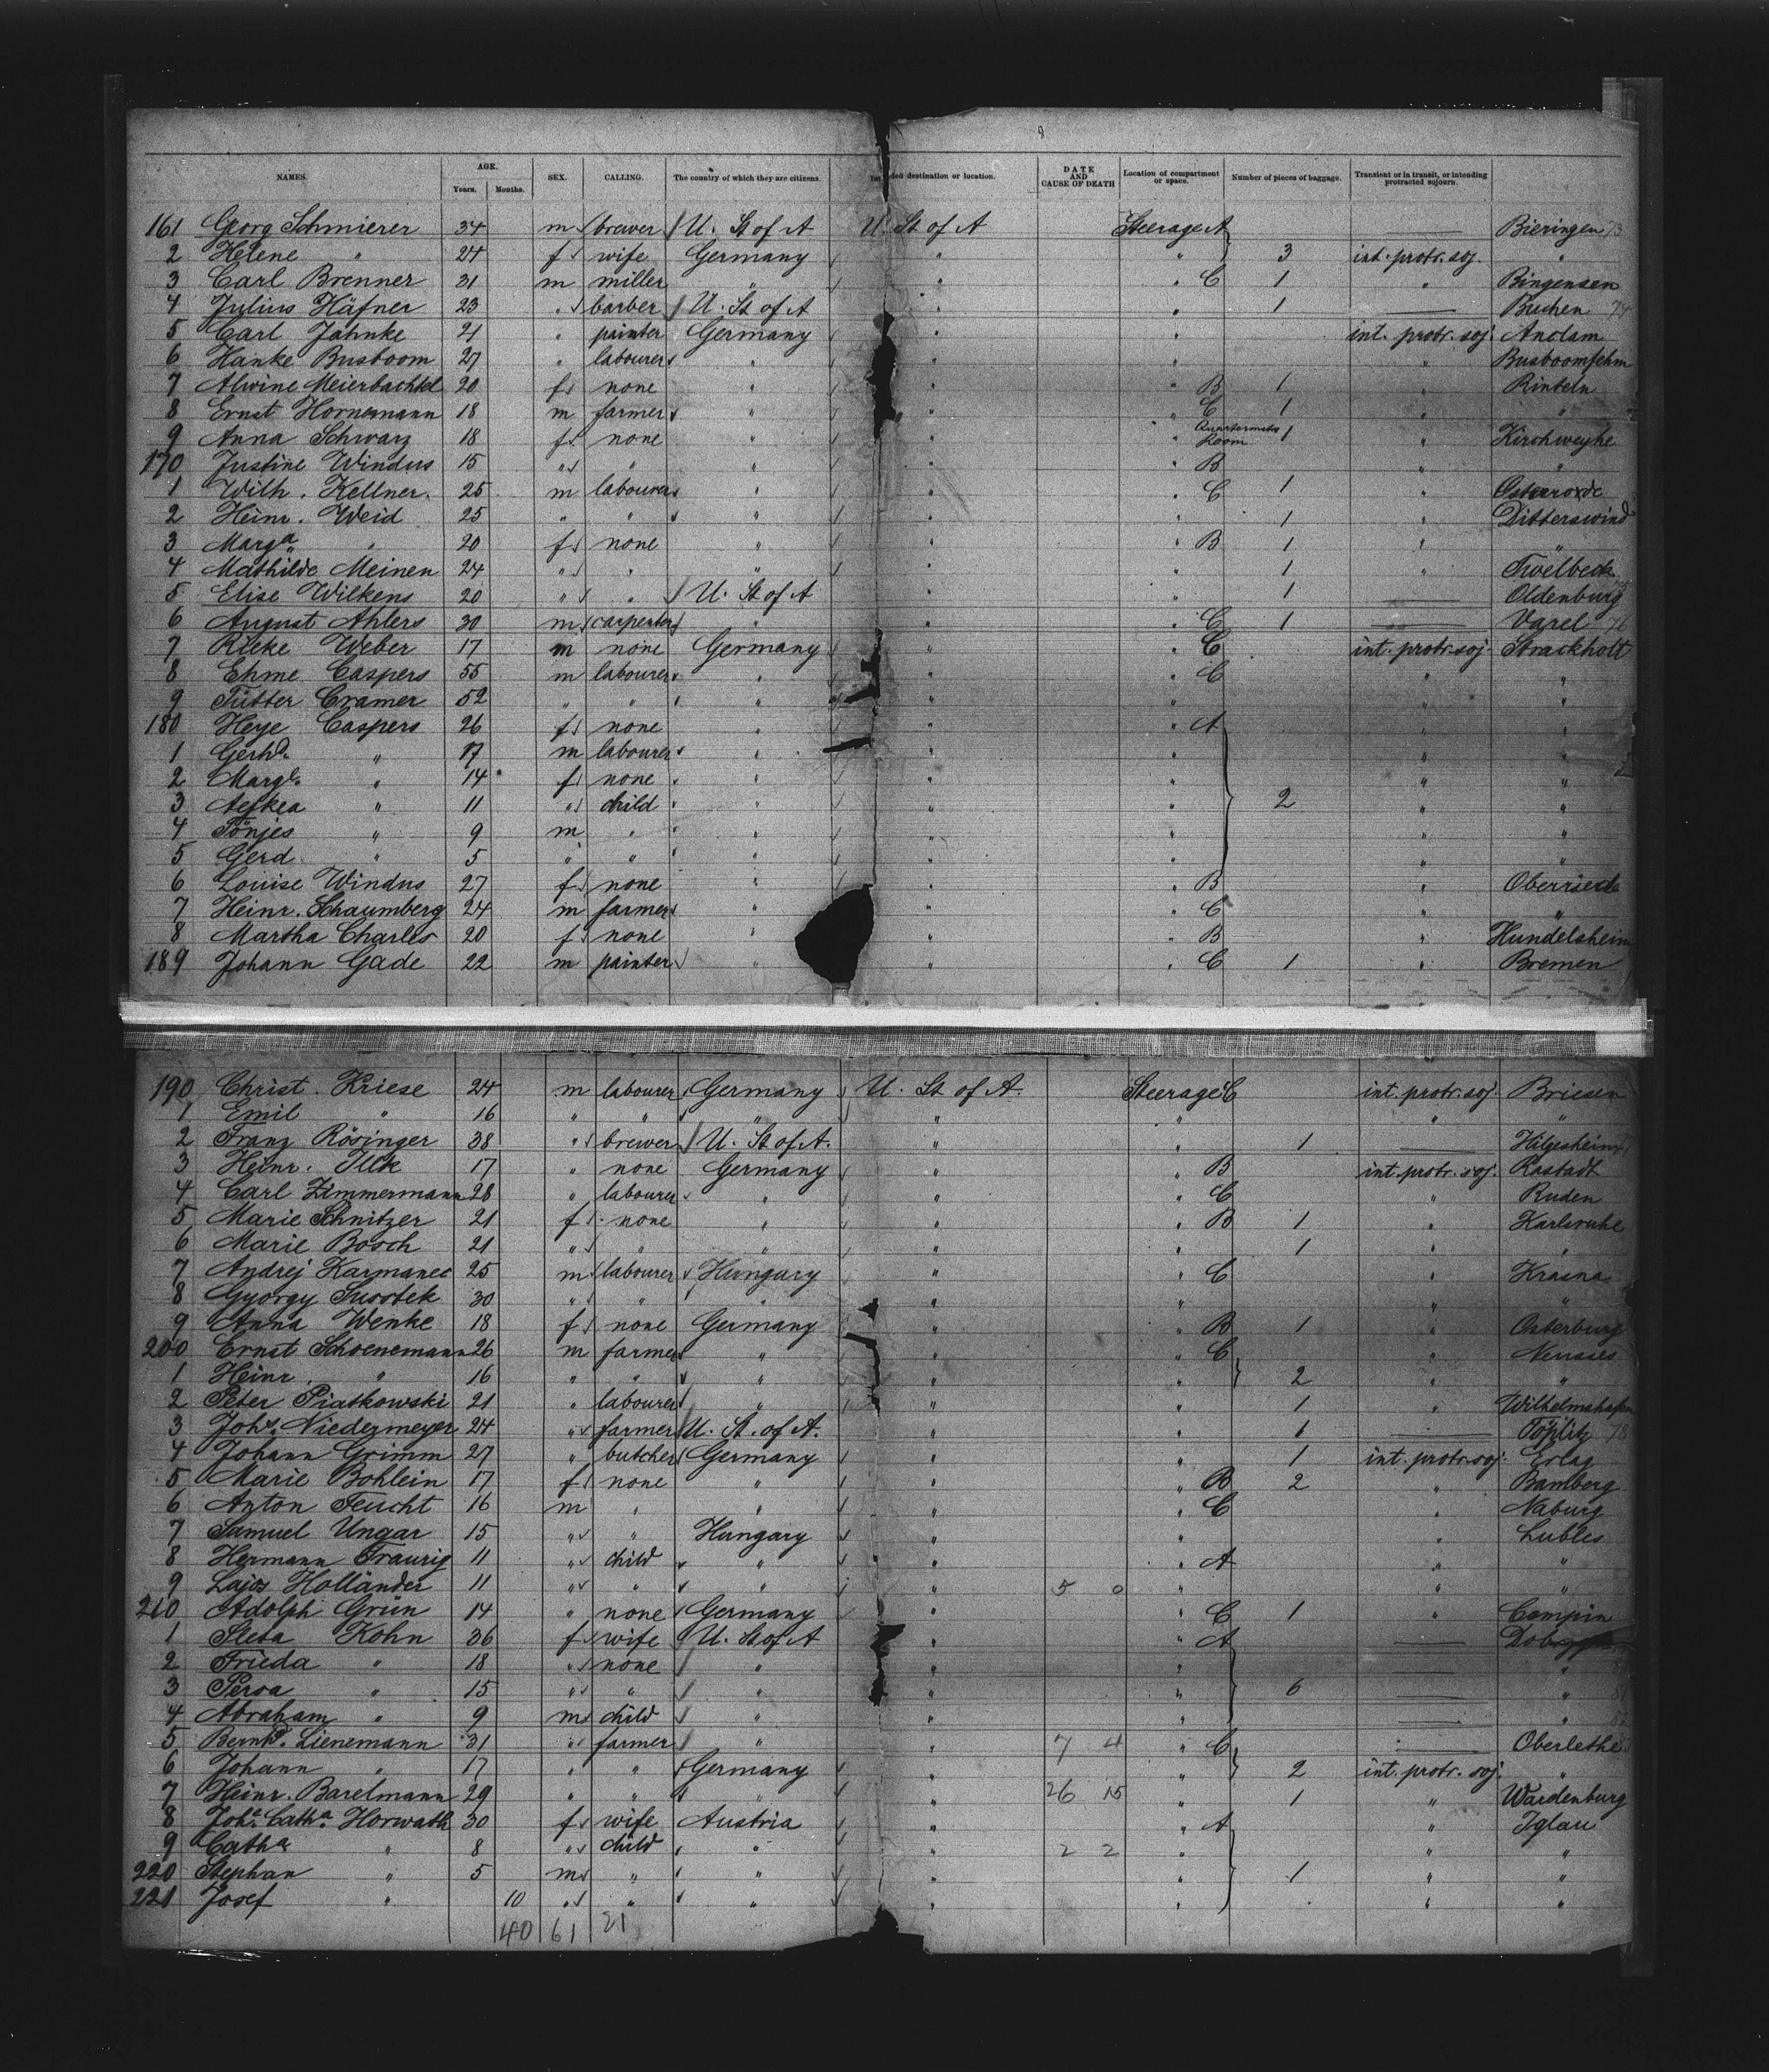 8
NAMES. AGE. Years. Months. SEX. CALLING. The country of which they are citizens. Intended destination or location. DATE AND CAUSE OF DEATH Location of compartment or space. Number of pieces of baggage. Transient or in transit, or intending protracted sojourn.
161 Georg Schmierer 34 m brewer U. St of A U. St of A Steerage A — Bieringen 73
2 Helene " 24 f wife Germany " " 3 int. protr. soj. "
3 Carl Brenner 31 m miller " " " C 1 " Bingensen
4 Julius Häfner 23 " barber U. St of A " " 1 — Buchen 74
5 Carl Jahnke 21 " painter Germany " " int. protr. soj. Anclam
6 Hanke Busboom 27 " labourer " " " " Busboomsfehm
7 Alwine Meierbachtel 20 f none " " " B 1 " Rinteln
8 Ernst Hornemann 18 m farmer " " " C 1 " "
9 Anna Schwarz 18 f none " " " Quartermstrs Room 1 " Kirchweyhe
170 Justine Windus 15 " " " " " B " "
1 Wilh. Kellner 25 m labourer " " " C 1 " Osterode
2 Heinr. Weid 25 " " " " " 1 " Ditterswind
3 Marga " 20 f none " " " B 1 " "
4 Mathilde Meinen 24 " " " " " 1 " Twelbeck
5 Elise Wilkens 20 " " U. St of A " " 1 — Oldenburg 75
6 August Ahlers 30 m carpenter " " " C 1 — Varel 76
7 Rieke Weber 17 m none Germany " " C int. protr. soj. Strackholt
8 Ehme Caspers 55 m labourer " " " C " "
9 Tütter Cramer 52 " " " " " " "
180 Heye Caspers 26 f none " " " A " "
1 Gerhd. " 17 m labourer " " " " "
2 Margt. " 14 f none " " " " "
3 Aefkea " 11 " child " " " 2 " "
4 Tönjes " 9 m " " " " " "
5 Gerd " 5 " " " " " " "
6 Louise Windus 27 f none " " " B " Oberriede
7 Heinr. Schaumberg 24 m farmer " " " C " "
8 Martha Charles 20 f none " " " B " Hundelsheim
189 Johann Gade 22 m painter " " " C 1 " Bremen
190 Christ. Kriese 24 m labourer Germany U. St of A. Steerage C int. protr. soj. Briesen
1 Emil " 16 " " " " " " "
2 Franz Rösinger 38 " brewer U. St of A. " " 1 — Hilgesheim
3 Heinr. Illk 17 " none Germany " " B int. protr. soj. Rastadt
4 Carl Zimmermann 28 " labourer " " " C " Ruden
5 Marie Schnitzer 21 f none " " " B 1 " Karlsruhe
6 Marie Bosch 21 " " " " " 1 " "
7 Andrej Karmanec 25 m labourer Hungary " " C " Krasna
8 Gyorgy Surotek 30 " " " " " " "
9 Anna Wenke 18 f none Germany " " B 1 " Osterburg
200 Ernst Schoenemann 26 m farmer " " " C " Neusses
1 Heinr. " 16 " " " " " 2 " "
2 Peter Piatkowski 21 " labourer " " " 1 " Wilhelmshafen
3 Johs. Niedermeyer 24 " farmer U. St. of A. " " 1 — Töplitz 78
4 Johann Grimm 27 " butcher Germany " " 1 int. protr. soj. Erlag
5 Marie Bohlein 17 f none " " " B 2 " Bamberg
6 Anton Feucht 16 m " " " " C " Naburg
7 Samuel Ungar 15 " " Hungary " " " Lubles
8 Hermann Traurig 11 " child " " " A " "
9 Lajos Holländer 11 " " " " 5 0 " " "
210 Adolph Grün 14 " none Germany " " C 1 " Compin
1 Sleta Kohn 36 f wife U. St of A " " A —
2 Frieda " 18 " none " " " — "
3 Perva " 15 " " " " " 6 — "
4 Abraham " 9 m child " " " — "
5 Bernhd. Lienemann 31 " farmer " " 7 4 " C — Oberlethe
6 Johann " 17 " " Germany " " 2 int. protr. soj. "
7 Heinr. Barelmann 29 " " " " 26 15 " 1 " Wardenburg
8 Joha. Catha. Horwath 30 f wife Austria " " A " Iglau
9 Catha " 8 " child " " 2 2 " " "
220 Stephan " 5 m " " " " 1 " "
221 Josef " 10 " " " " " " "
40 61 21